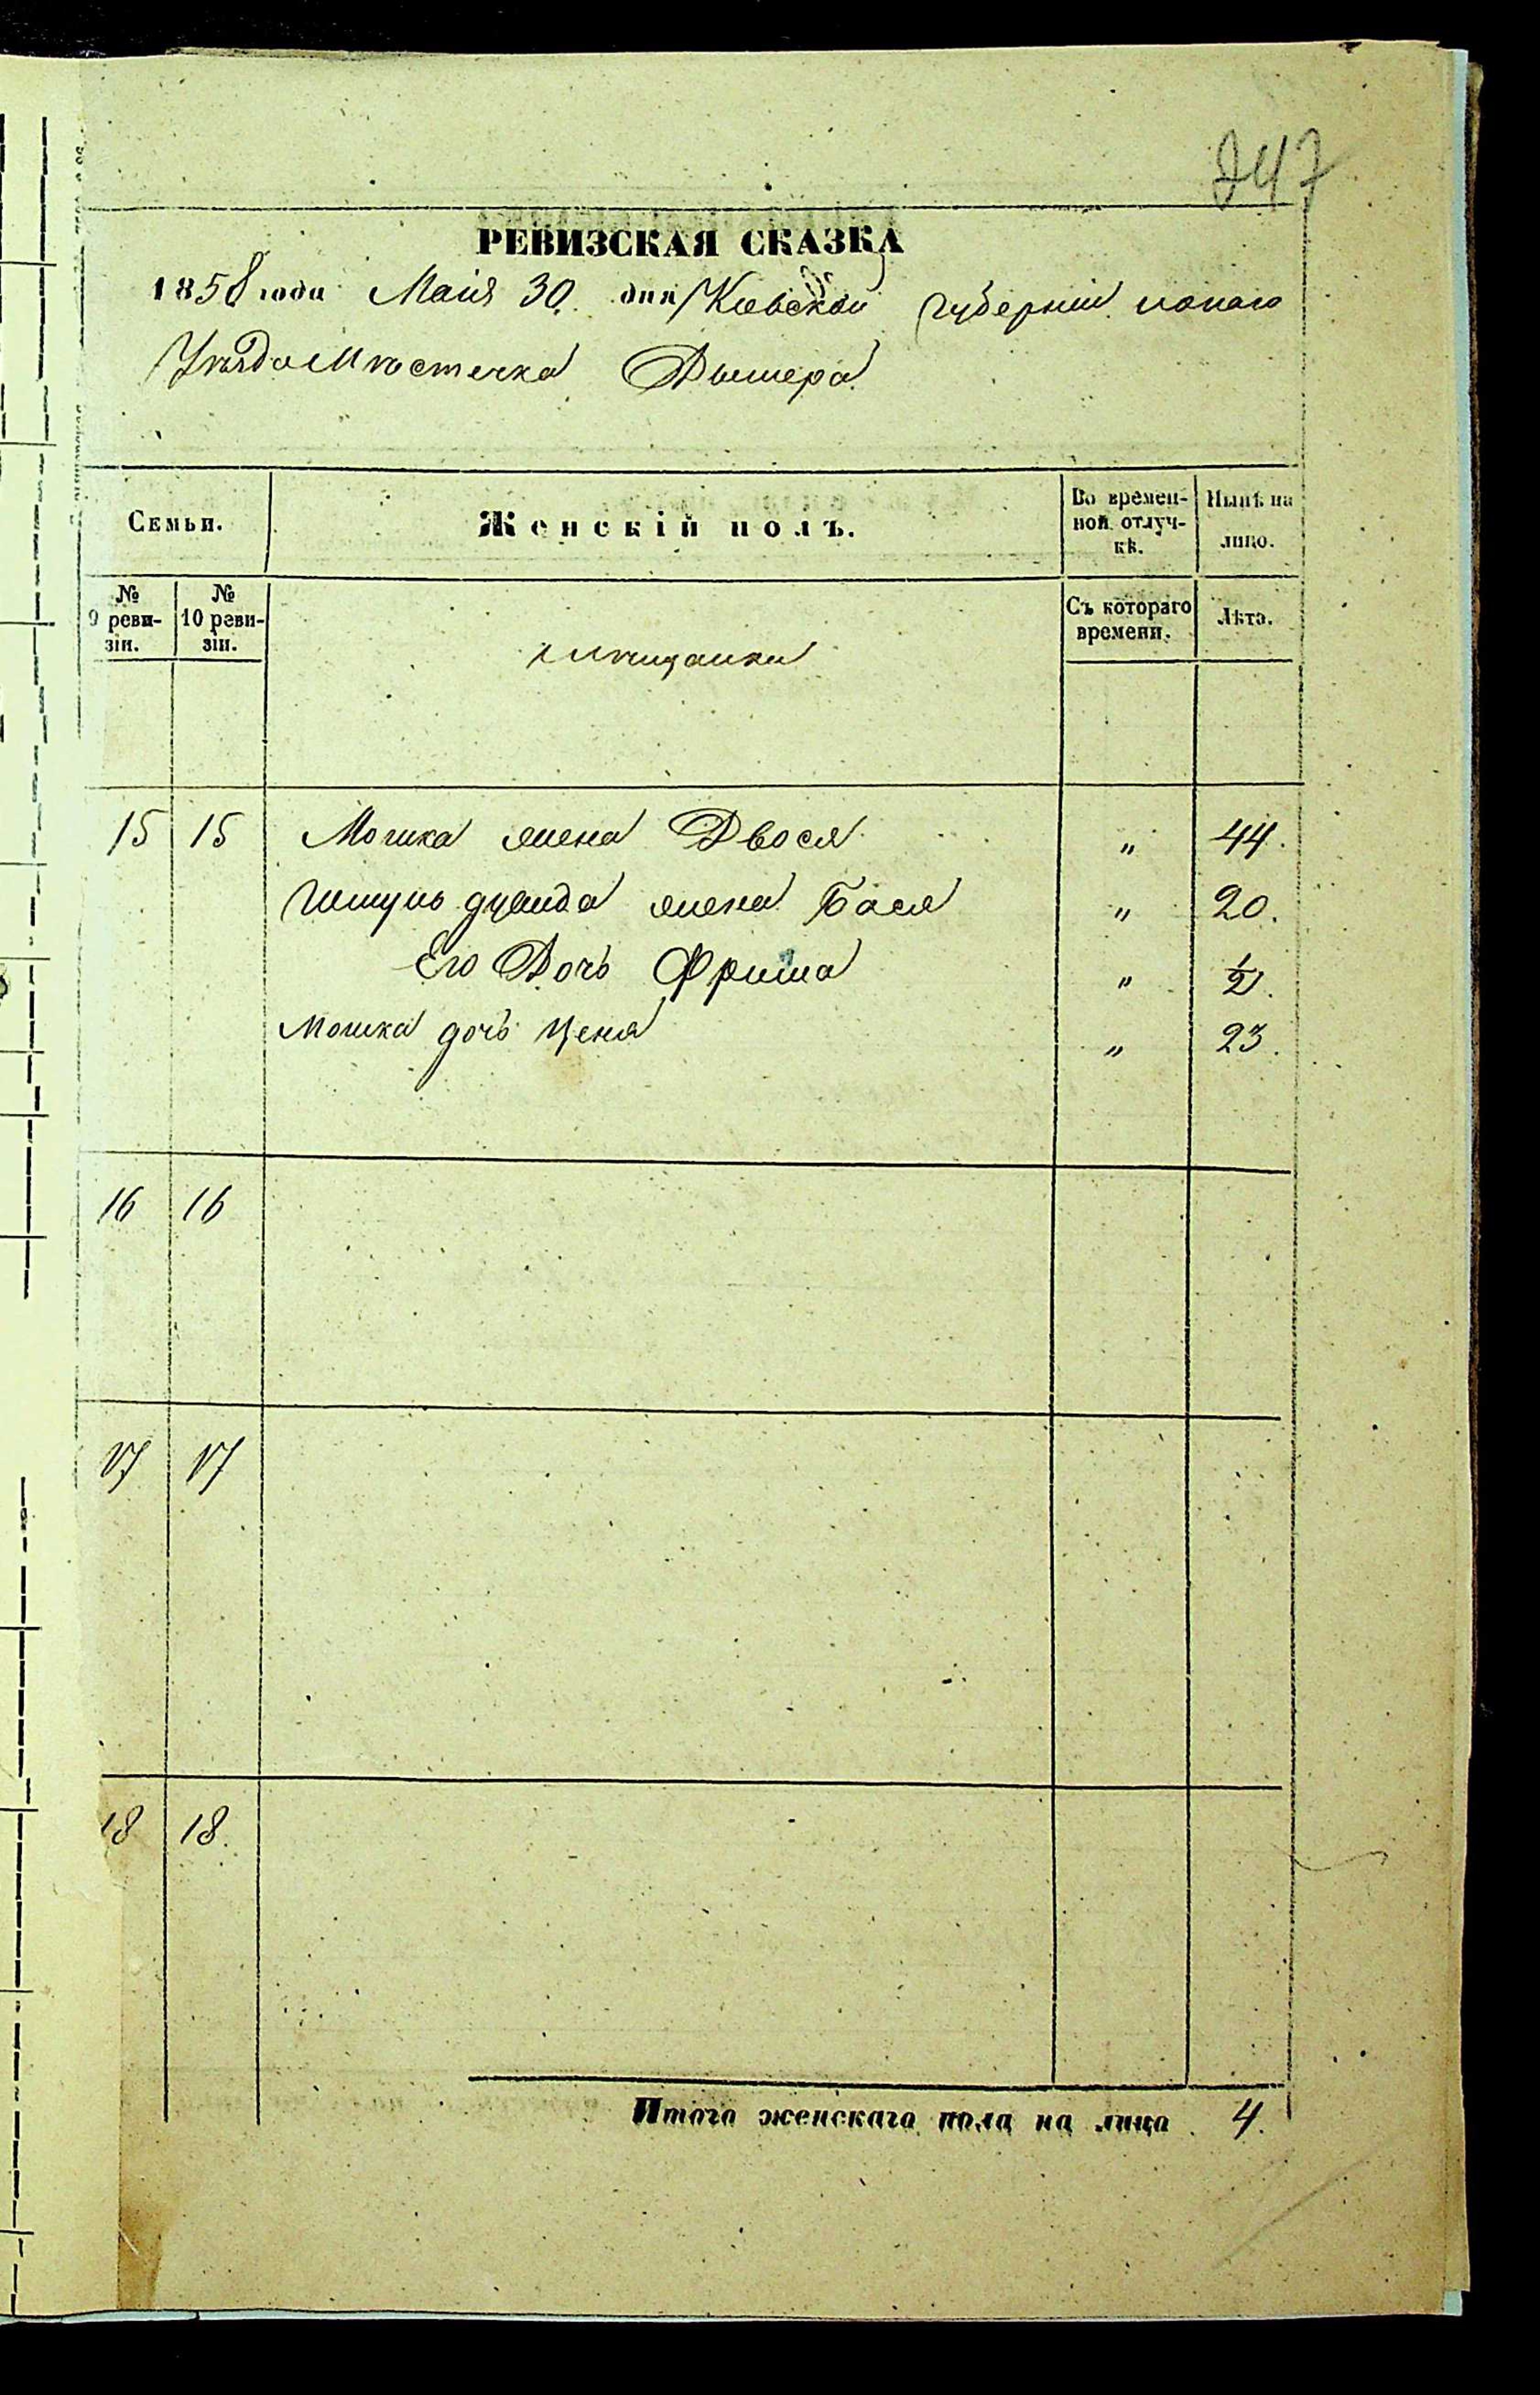 247
РЕВИЗСКАЯ СКАЗКА
1858 года Маія 30. дня Кіевской Губерніи тогоже
Уѣзда Мѣстечка Дымера
Семьи.
Женскій полъ.
Во времен-
ной отлуч-
кѣ.
Нынѣ на
лицо.
№
9 реви-
зіи.
№
10 реви-
зіи.
Мѣщанки
Съ котораго
времени.
Лѣта.
15 15 Мошка жена Двося " 44.
жена Бася " 20.
Его Дочь Фрима " 1/2.
Мошка дочь Ценя " 23.
16 16
17 17
18 18.
Итого женскаго пола на лицо 4.